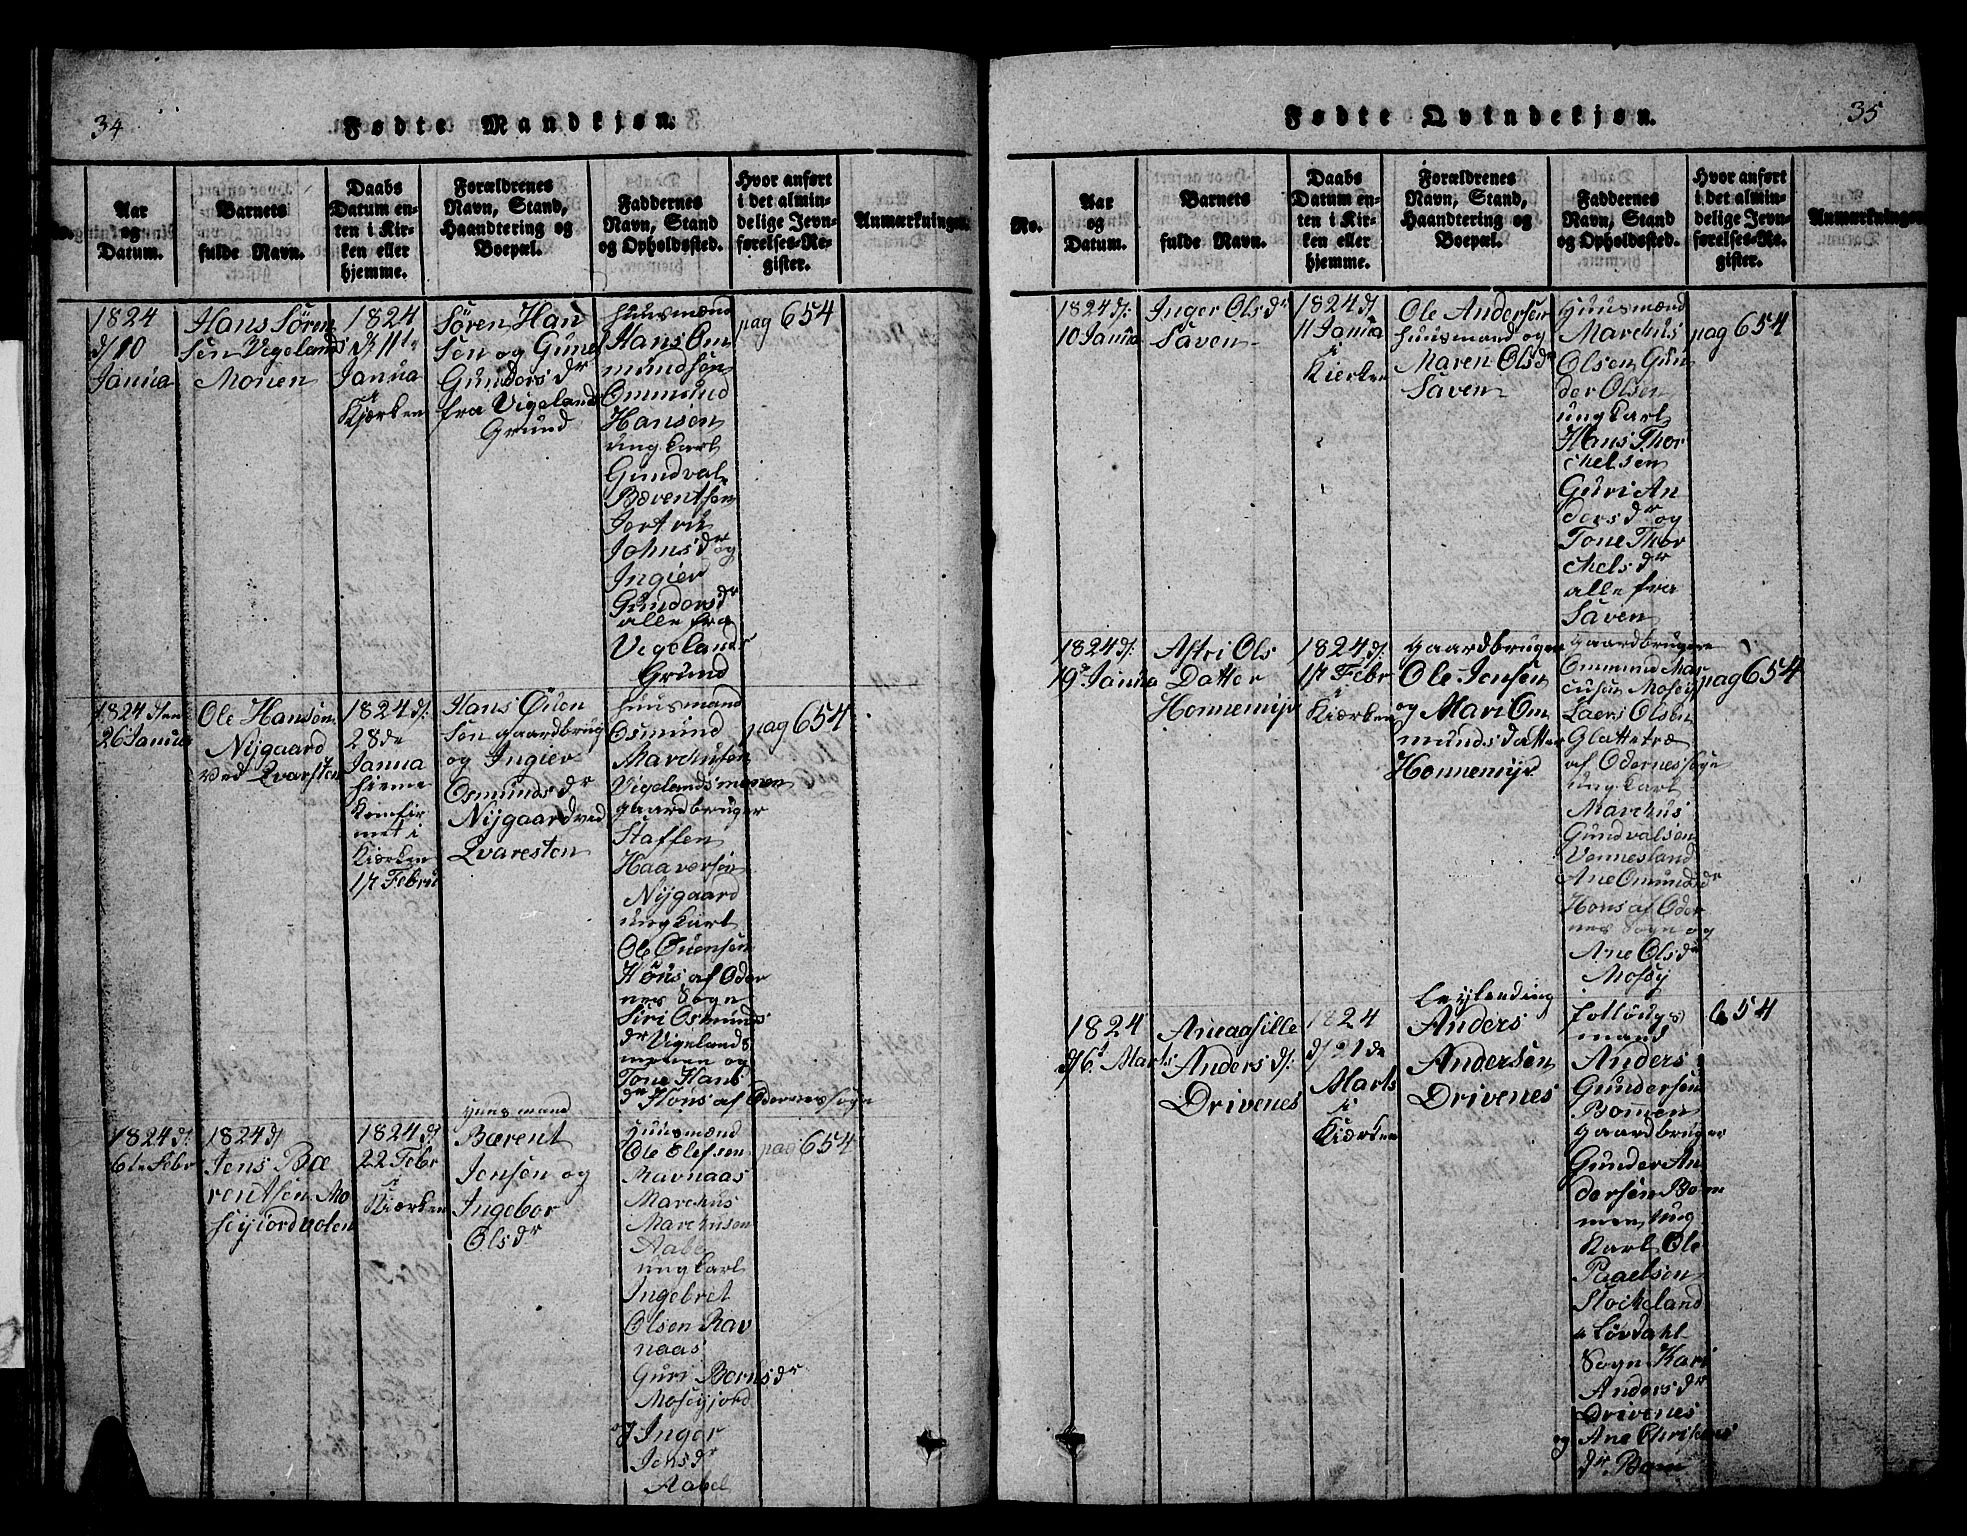 34
Fødte Mandkjøn.
Aar
og
Datum.
Barnets
fulde Navn.
Daabs
Datum en-
ten i Kir-
ken eller
hjemme.
Forældrenes
Navn, Stand,
Haandtering og
Boepæl.
Faddernes
Navn, Stand
og Opholdssted.
Hvor anført
i det almin-
delige Jevn-
førelses-Re-
gister.
Anmærkninger.
1824
d/10
Janua
Hans Søren
sen Vigelands
Monen
1824
d: 11te
Janua
i
Kjærken
Søren Han
sen og Gune
Gundors dr
fra Vigelands
Grund
Huusmænd
Hans Om
mundsen
Ommund
Hansen
ungkarl
Gundval
Bærentsen
Jertru
Johnsdr og
Ingier
Gundorsdr
alle fra
Vigelands
Grund
pag 654
1824 den
26 Janua
Ole Hansen
Nijgaard
ved Qvarsten
1824 d:
28de
Janua
hieme
Komfir
met i
Kiærken
17 Febru
Hans Øuen
sen gaardbrug
og Ingier
Osmunds dr
Nijgaard ved
Qvaresten
Huusmand
Osmund
Marchusen
Vigelandsmonen
gaardbruger
Staffen
Haaværsen
Nijgaard
ungkarl
Ole Øuensen
Høus af Oder
nes Sogn
Siri Osmunds
dr Vigelands
monen og
Tone Hans
dr Høus af Odernes sogn
pag 654
1824 d:
6te Febr
1824 d/
Jens Bæ
rentsen Mo
seyjordvolen
1824 d/
22 Febr
i
Kiærken
Huusmand
Bærent
Jensen og
Ingebor
Olsdr
Huusmænd
Ole Olefsen
Ravnaas
Marchus
Marchusen
Aabel
ungkarl
Ingebret
Olsen Rav
naas
Guri Bernsdr
Moseyjord
og Inger
Jensdr
Aabel
pag 654
Fødte Qvindekjøn.
35
No.
Aar
og
Datum.
Barnets
fulde Navn.
Daabs
Datum en-
ten i Kir-
ken eller
hjemme.
Forældrenes
Navn, Stand,
Haandtering og
Boepæl.
Faddernes
Navn, Stand
og Opholdssted.
Hvor anført
i det almin-
delige Jevn-
førelses-Re-
gister.
Anmærkninger
1824 d:
10 Janua
Inger Olsdr
Saven
1824 d/
11 Janua
i
Kierken
Ole Andersen
Huusmand og
Maren Olsd
Saven
Huusmænd
Marchus
Olsen Gun
der Olsen
ungkarl
Hans Thor
chelsen
Guri An
dersdr og
Tone Thor
chelsdr
alle fra
Saven
pag 654
1824 d:
19de Janua
Astri Ols
Datter
Honnemijr
1824 d/.
17 Febr
i
Kiærken
gaardbruger
Ole Jensen
og Mari Om
mundsdatter
Honnemijr
gaardbrugere
Ommund Mar
cusen Mosey
Laers Olsen
Glattetræ
af Odernes sogn
ungkarl
Marchus
Gundvalsen
Vennesland
Ane Omundsdr
Hons af Oder
nes Sogn og
Ane Olsdr
Mosey
pag 654
1824
d/6te Marts
Aneaasille
Anders d/:
Drivenes
1824
d/ 21de
Marts
i
Kiærken
Leylending
Anders
Andersen
Drivenes
mand
Anders
Gundersen
Bomen
gaardbruger
Gunder An
dersen Bom
men, ung
karl Ole
Paaelsen
Stockeland
Løvdahl
Sogn Kari
Andersdr
Drivenes
og Ane Christens
dr Bom
654